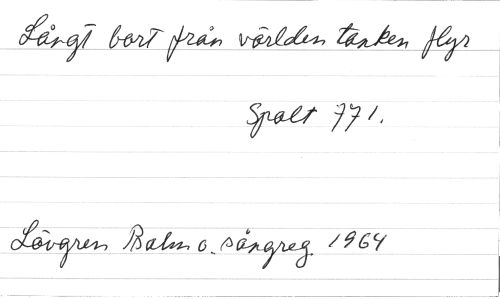 Långt bort från världen tanken flyr
Spalt 771.
Lövgren Psalm o. sångreg. 1964